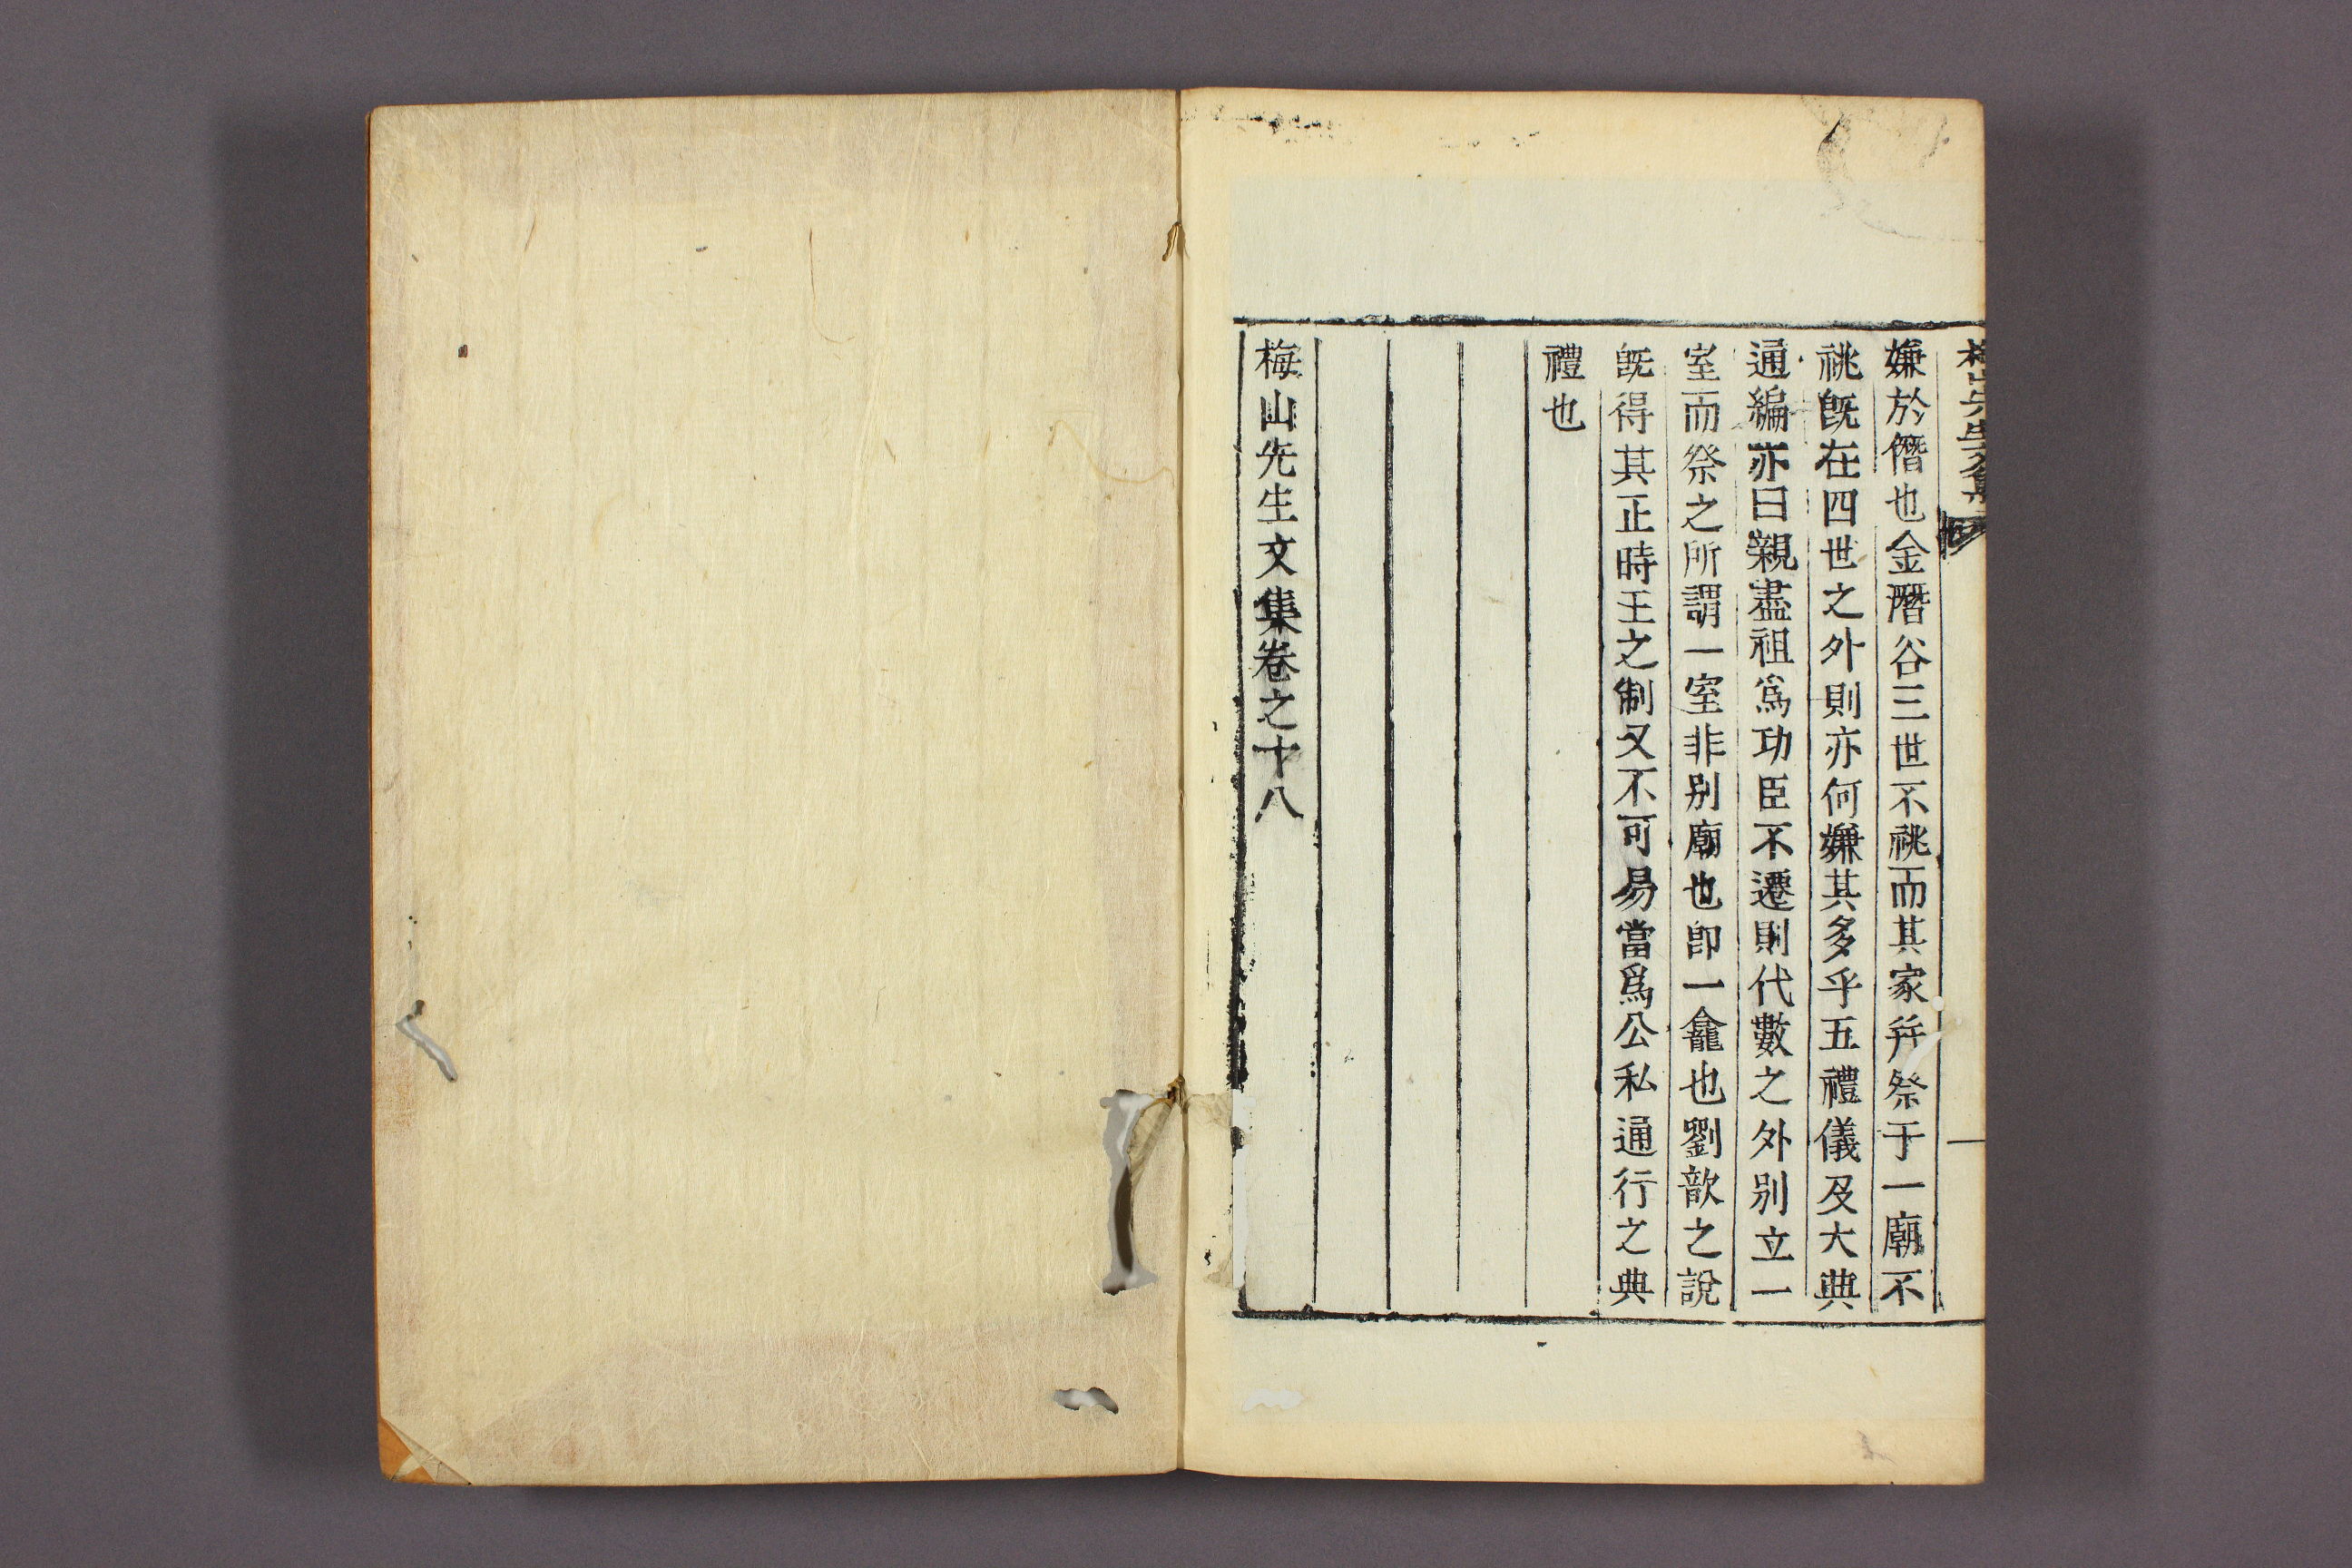 嫌於僭也金潛谷三世不祧而其家幷祭于一廟不
祧旣在四世之外則亦何嫌其多乎五禮儀及大典
通編亦曰親盡祖爲功臣不遷則代數之外別立一
室而祭之所謂一室非別廟也卽一龕也劉歆之說
旣得其正時王之制又不可易當爲公私通行之典
禮也
梅山先生文集卷之十八